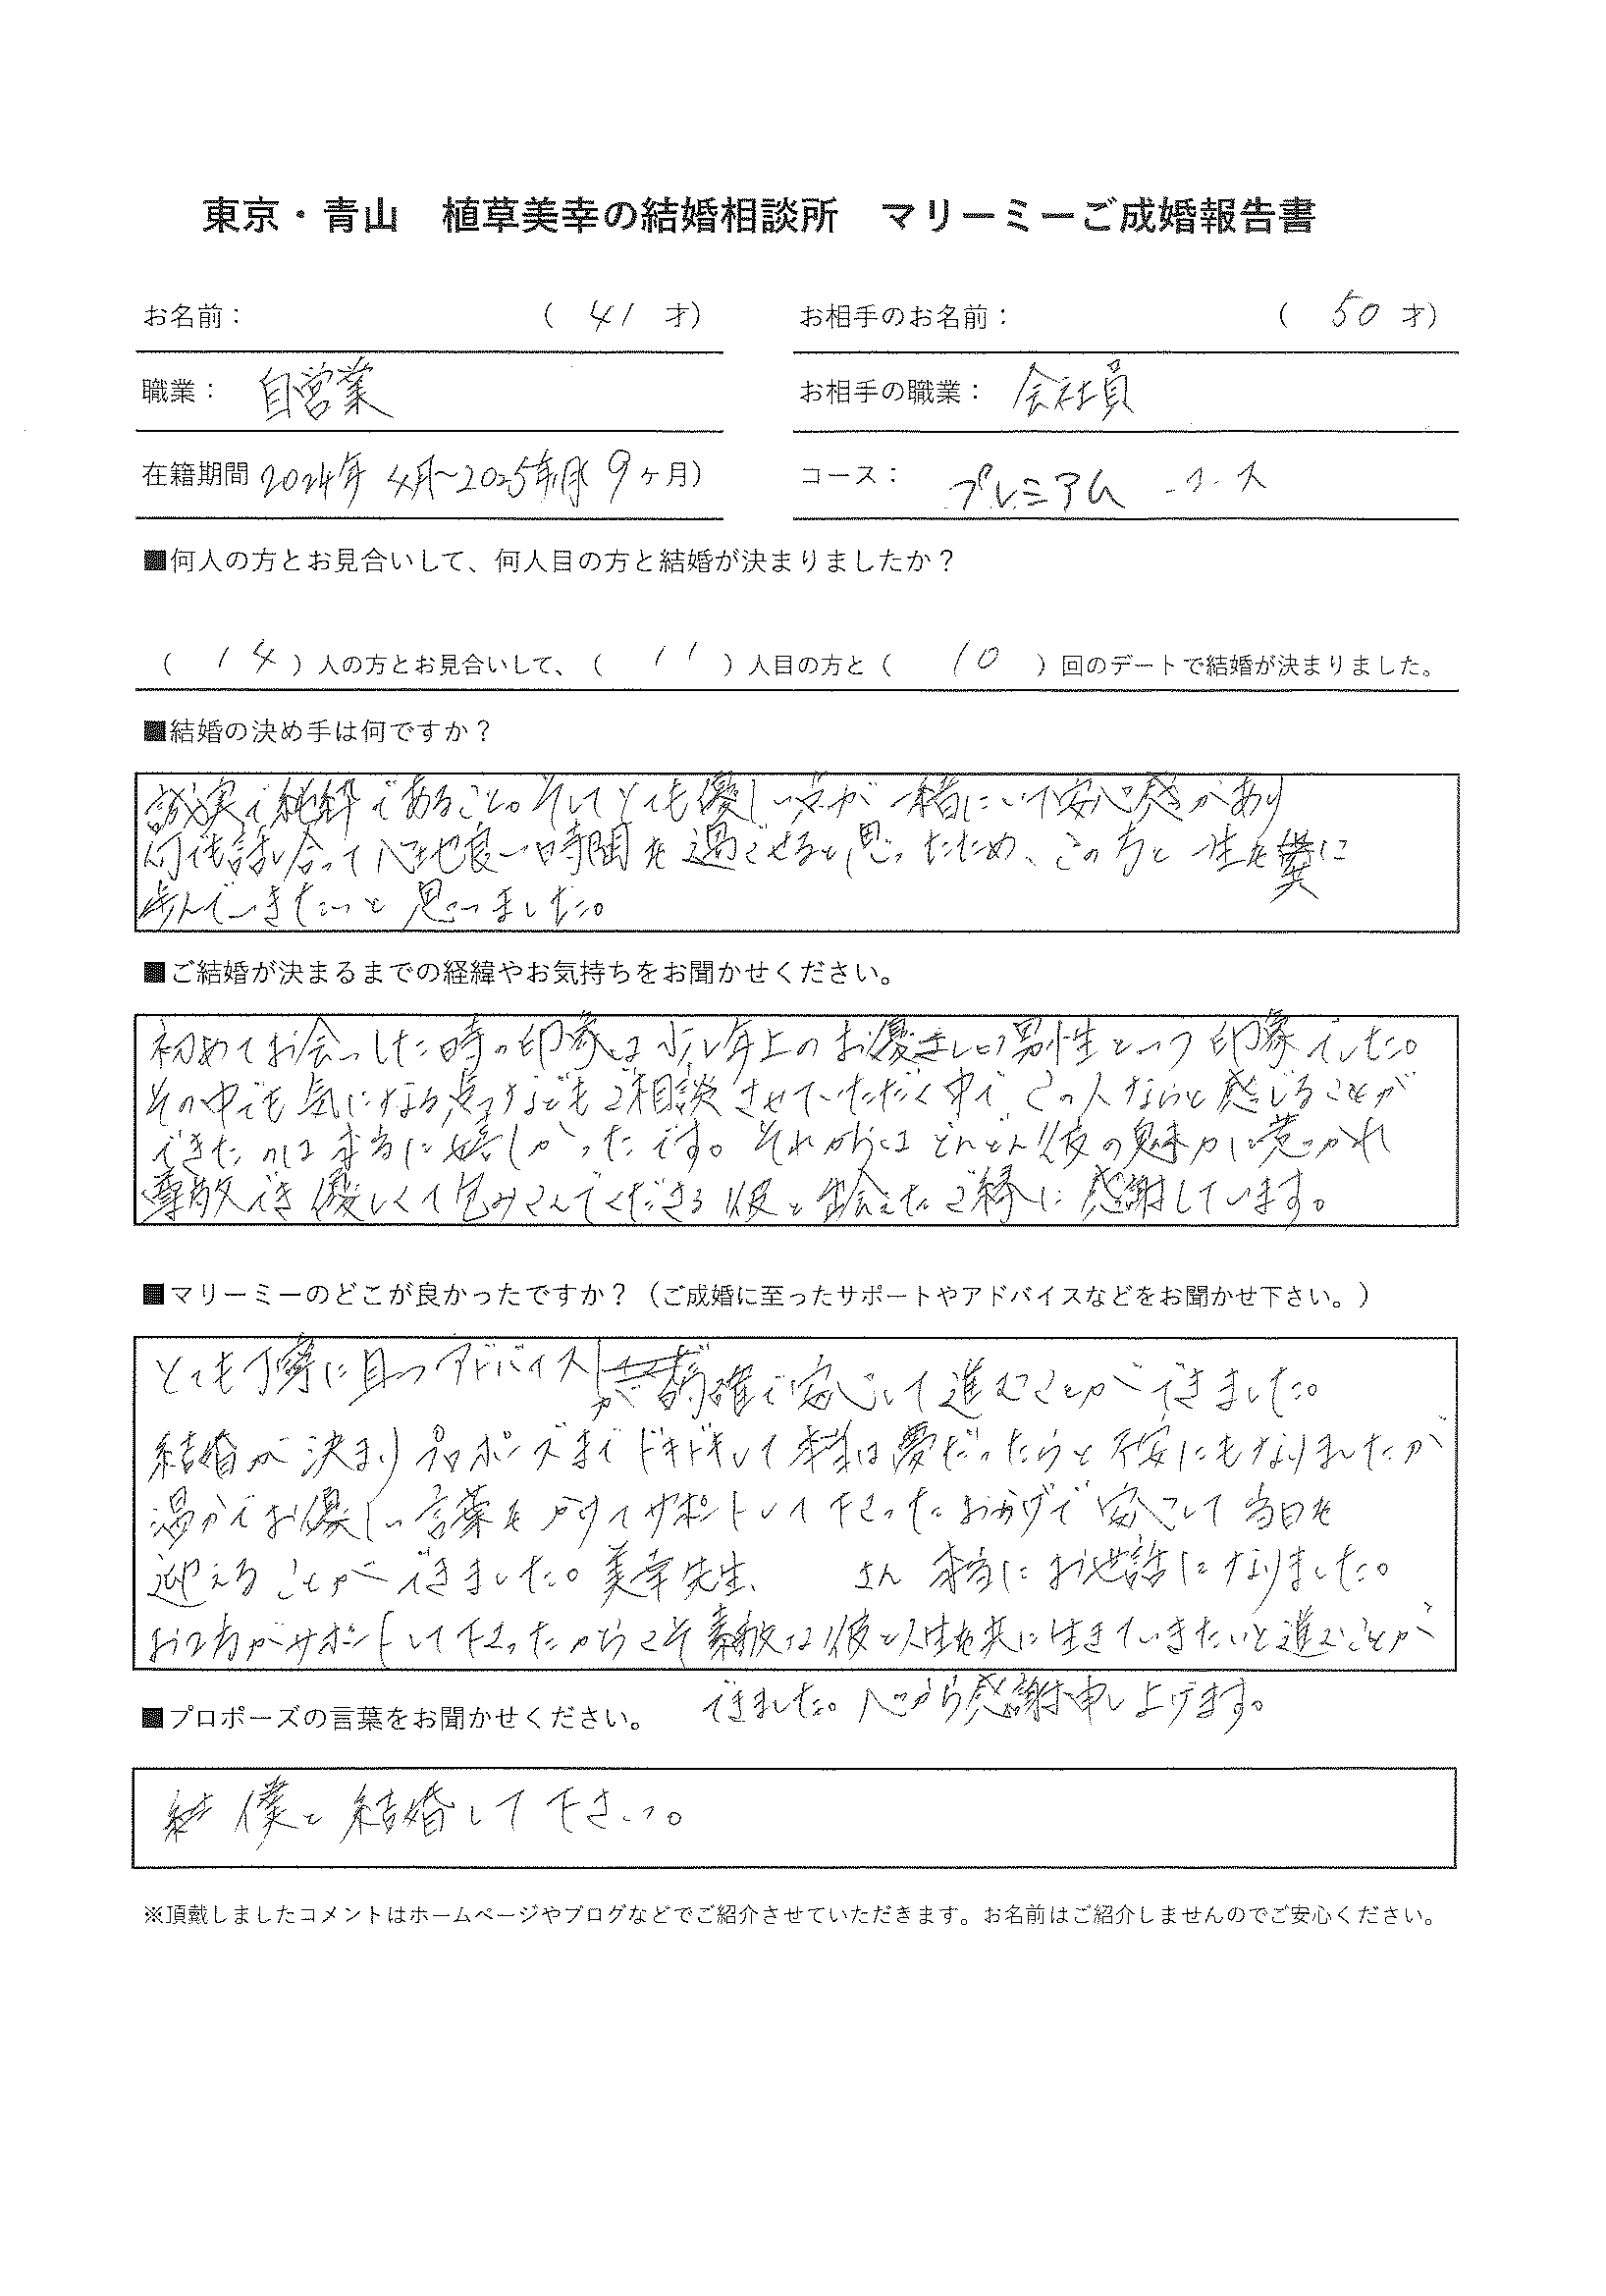 東京・青山　植草美幸の結婚相談所　マリーミーご成婚報告書
お名前：　（ 41 才）　お相手のお名前：　（ 50 才）
職業：　自営業　お相手の職業：　会社員
在籍期間 2024年 4月～2025年1月( 9ヶ月)　コース：　プレミアム コース
■何人の方とお見合いして、何人目の方と結婚が決まりましたか？
（ 14 ）人の方とお見合いして、（ 11 ）人目の方と（ 10 ）回のデートで結婚が決まりました。
■結婚の決め手は何ですか？
誠実で純粋であること。そしてとても優しい方が一緒にいて安心感があり
何でも話し合って心地良い時間を過ごせると思ったため、この方と一生を共に
歩んでいきたいと思いました。
■ご結婚が決まるまでの経緯やお気持ちをお聞かせください。
初めてお会いした時の印象は少し年上のお優しい男性という印象でした。
その中でも気になる点などもご相談させていただく中で、この人ならと感じることが
できたのは本当に嬉しかったです。それからはどんどん彼の魅力に惹かれ
尊敬でき優しくて包みこんでくださる彼と出会えたご縁に感謝しています。
■マリーミーのどこが良かったですか？（ご成婚に至ったサポートやアドバイスなどをお聞かせ下さい。）
とても丁寧に且つアドバイスが的確で安心して進むことができました。
結婚が決まりプロポーズまでドキドキして本当は夢だったらと不安にもなりましたが
温かでお優しい言葉を サポートして下さったおかげで安心して当日を
迎えることができました。美幸先生、　さん 本当にお世話になりました。
お2方がサポートして下さったからこそ素敵な彼と人生を共に生きていきたいと進むことが
できました。心から感謝申し上げます。
■プロポーズの言葉をお聞かせください。
僕と結婚して下さい。
※頂戴しましたコメントはホームページやブログなどでご紹介させていただきます。お名前はご紹介しませんのでご安心ください。